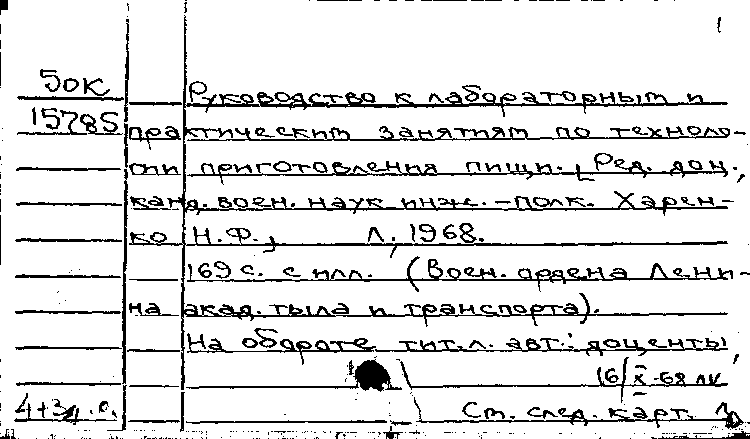 1
50к
Руководство к лабораторным и
15785
практическим занятиям по техноло-
гии приготовления пищи. [Ред. доц.,
канд. воен. наук инж.-полк. Харен-
ко Н.Ф.] Л., 1968.
169 с. с илл. (Воен. ордена Лени-
на акад. тыла и транспорта).
На обороте тит. л. авт.: доценты,
16/X-68 лк
См. след. карт.